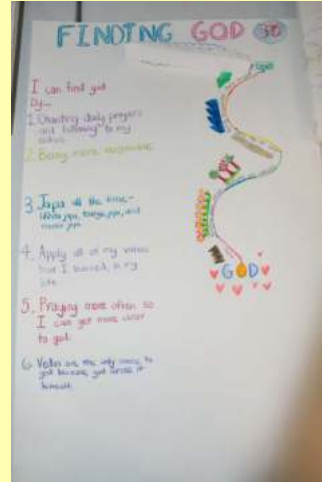 FINDING GOD
I can find god
by...
1. Chanting daily prayers
and listening to my
2. Being more responsible
3. Japa all the time-
japa, and
japa
4. Apply all of my values
that I learned, in my
life
5. Praying more often so
I can get more closer
to god.
6. Vedas are the only means to
god because god wrote it
himself
GOD